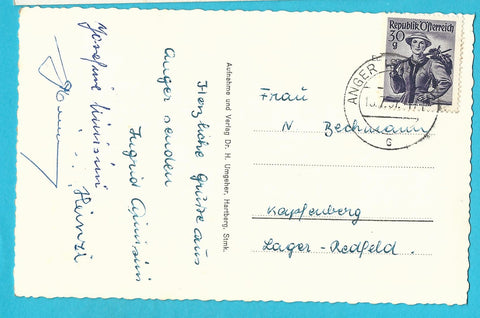 Herzliche Grüße aus
Anger senden
Ingrid
Josefine
Heinzi
Aufnahme und Verlag Dr. H. Umgeher, Hartberg, Stmk.
Republik Österreich
30
g
ANGER
c
Frau
N Bechmann
Kapfenberg
Lager-Redfeld.